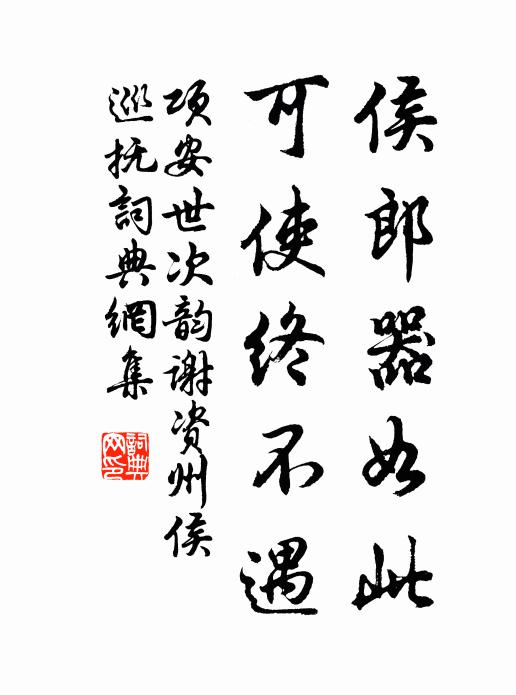 侯郎器如此
可使终不遇
项安世次韵谢资州侯
巡抚詞典網集
詞典网印